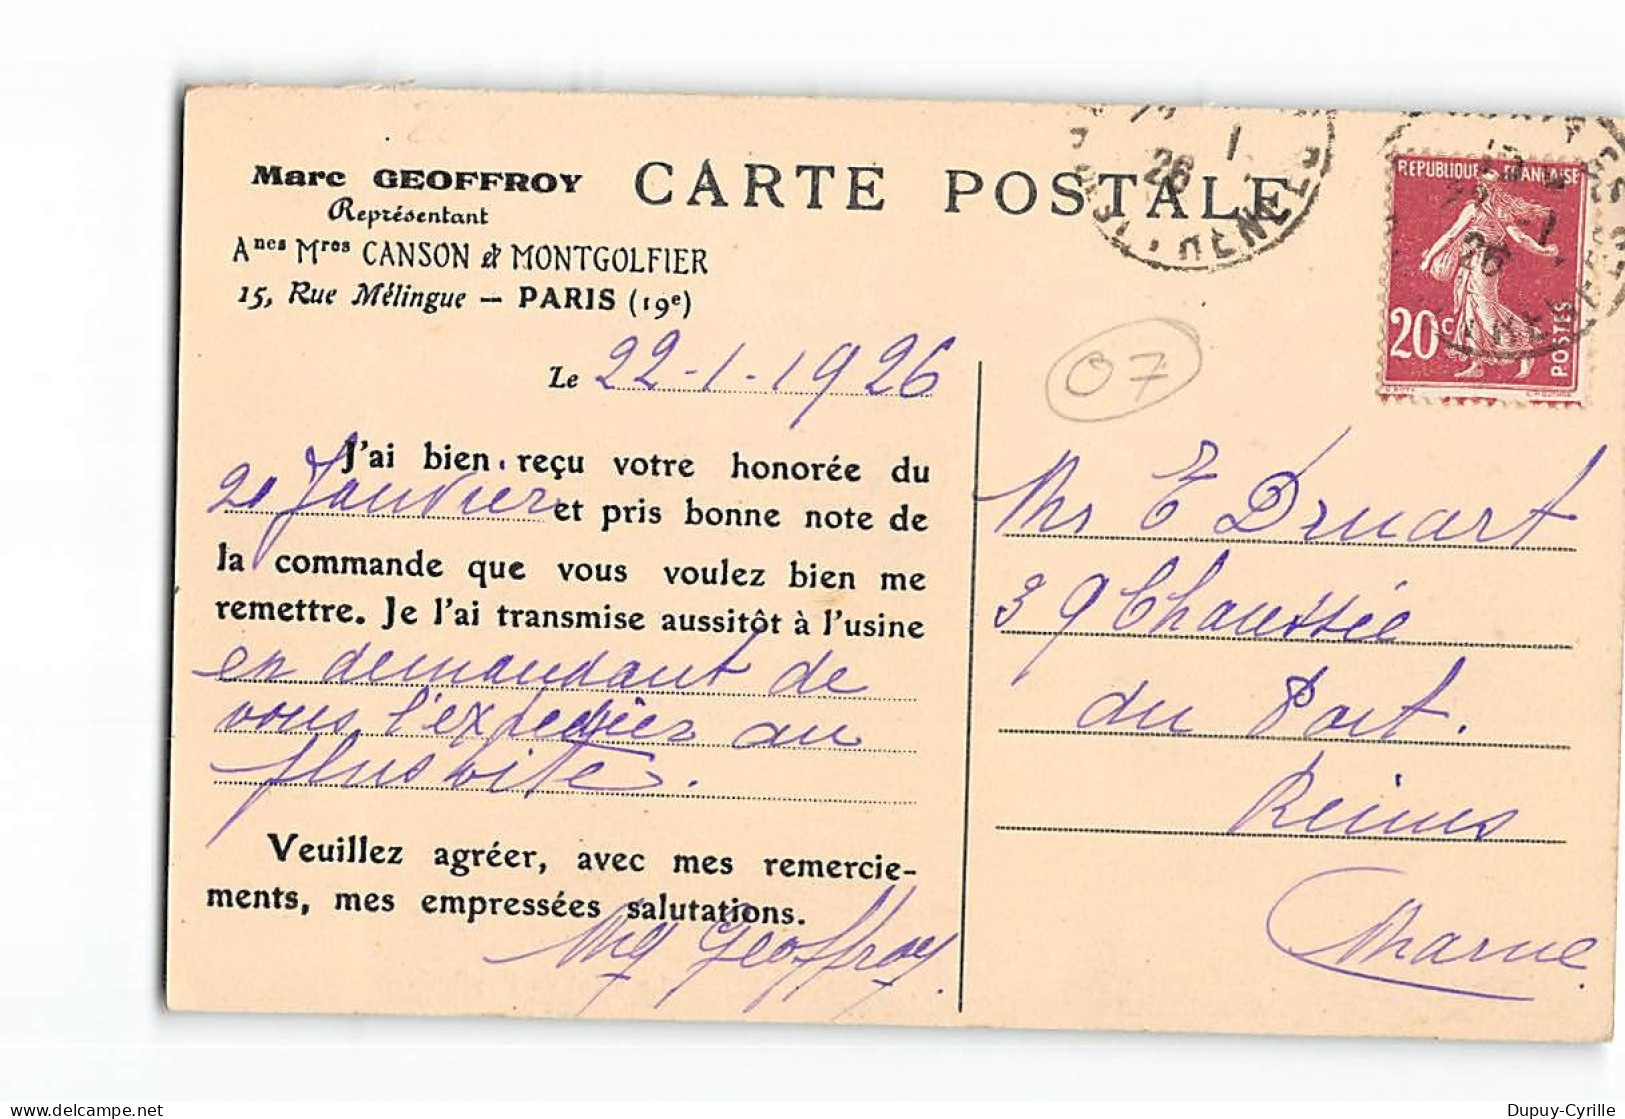 Marc GEOFFROY
Représentant
Anes Mres CANSON & MONTGOLFIER
15, Rue Mélingue — PARIS (19e)
CARTE POSTALE
26 1
REPUBLIQUE FRANÇAISE
26
20c
POSTES
07
Le 22-1-1926
J'ai bien reçu votre honorée du
20 Janvier et pris bonne note de
la commande que vous voulez bien me
remettre. Je l'ai transmise aussitôt à l'usine
en demandant de
vous l'expedier au
plus vite.
Veuillez agréer, avec mes remercie-
ments, mes empressées salutations.
Geoffroy
Mr E Druart
39 Chaussée
du Port.
Reims
Marne
Dupuy-Cyrille